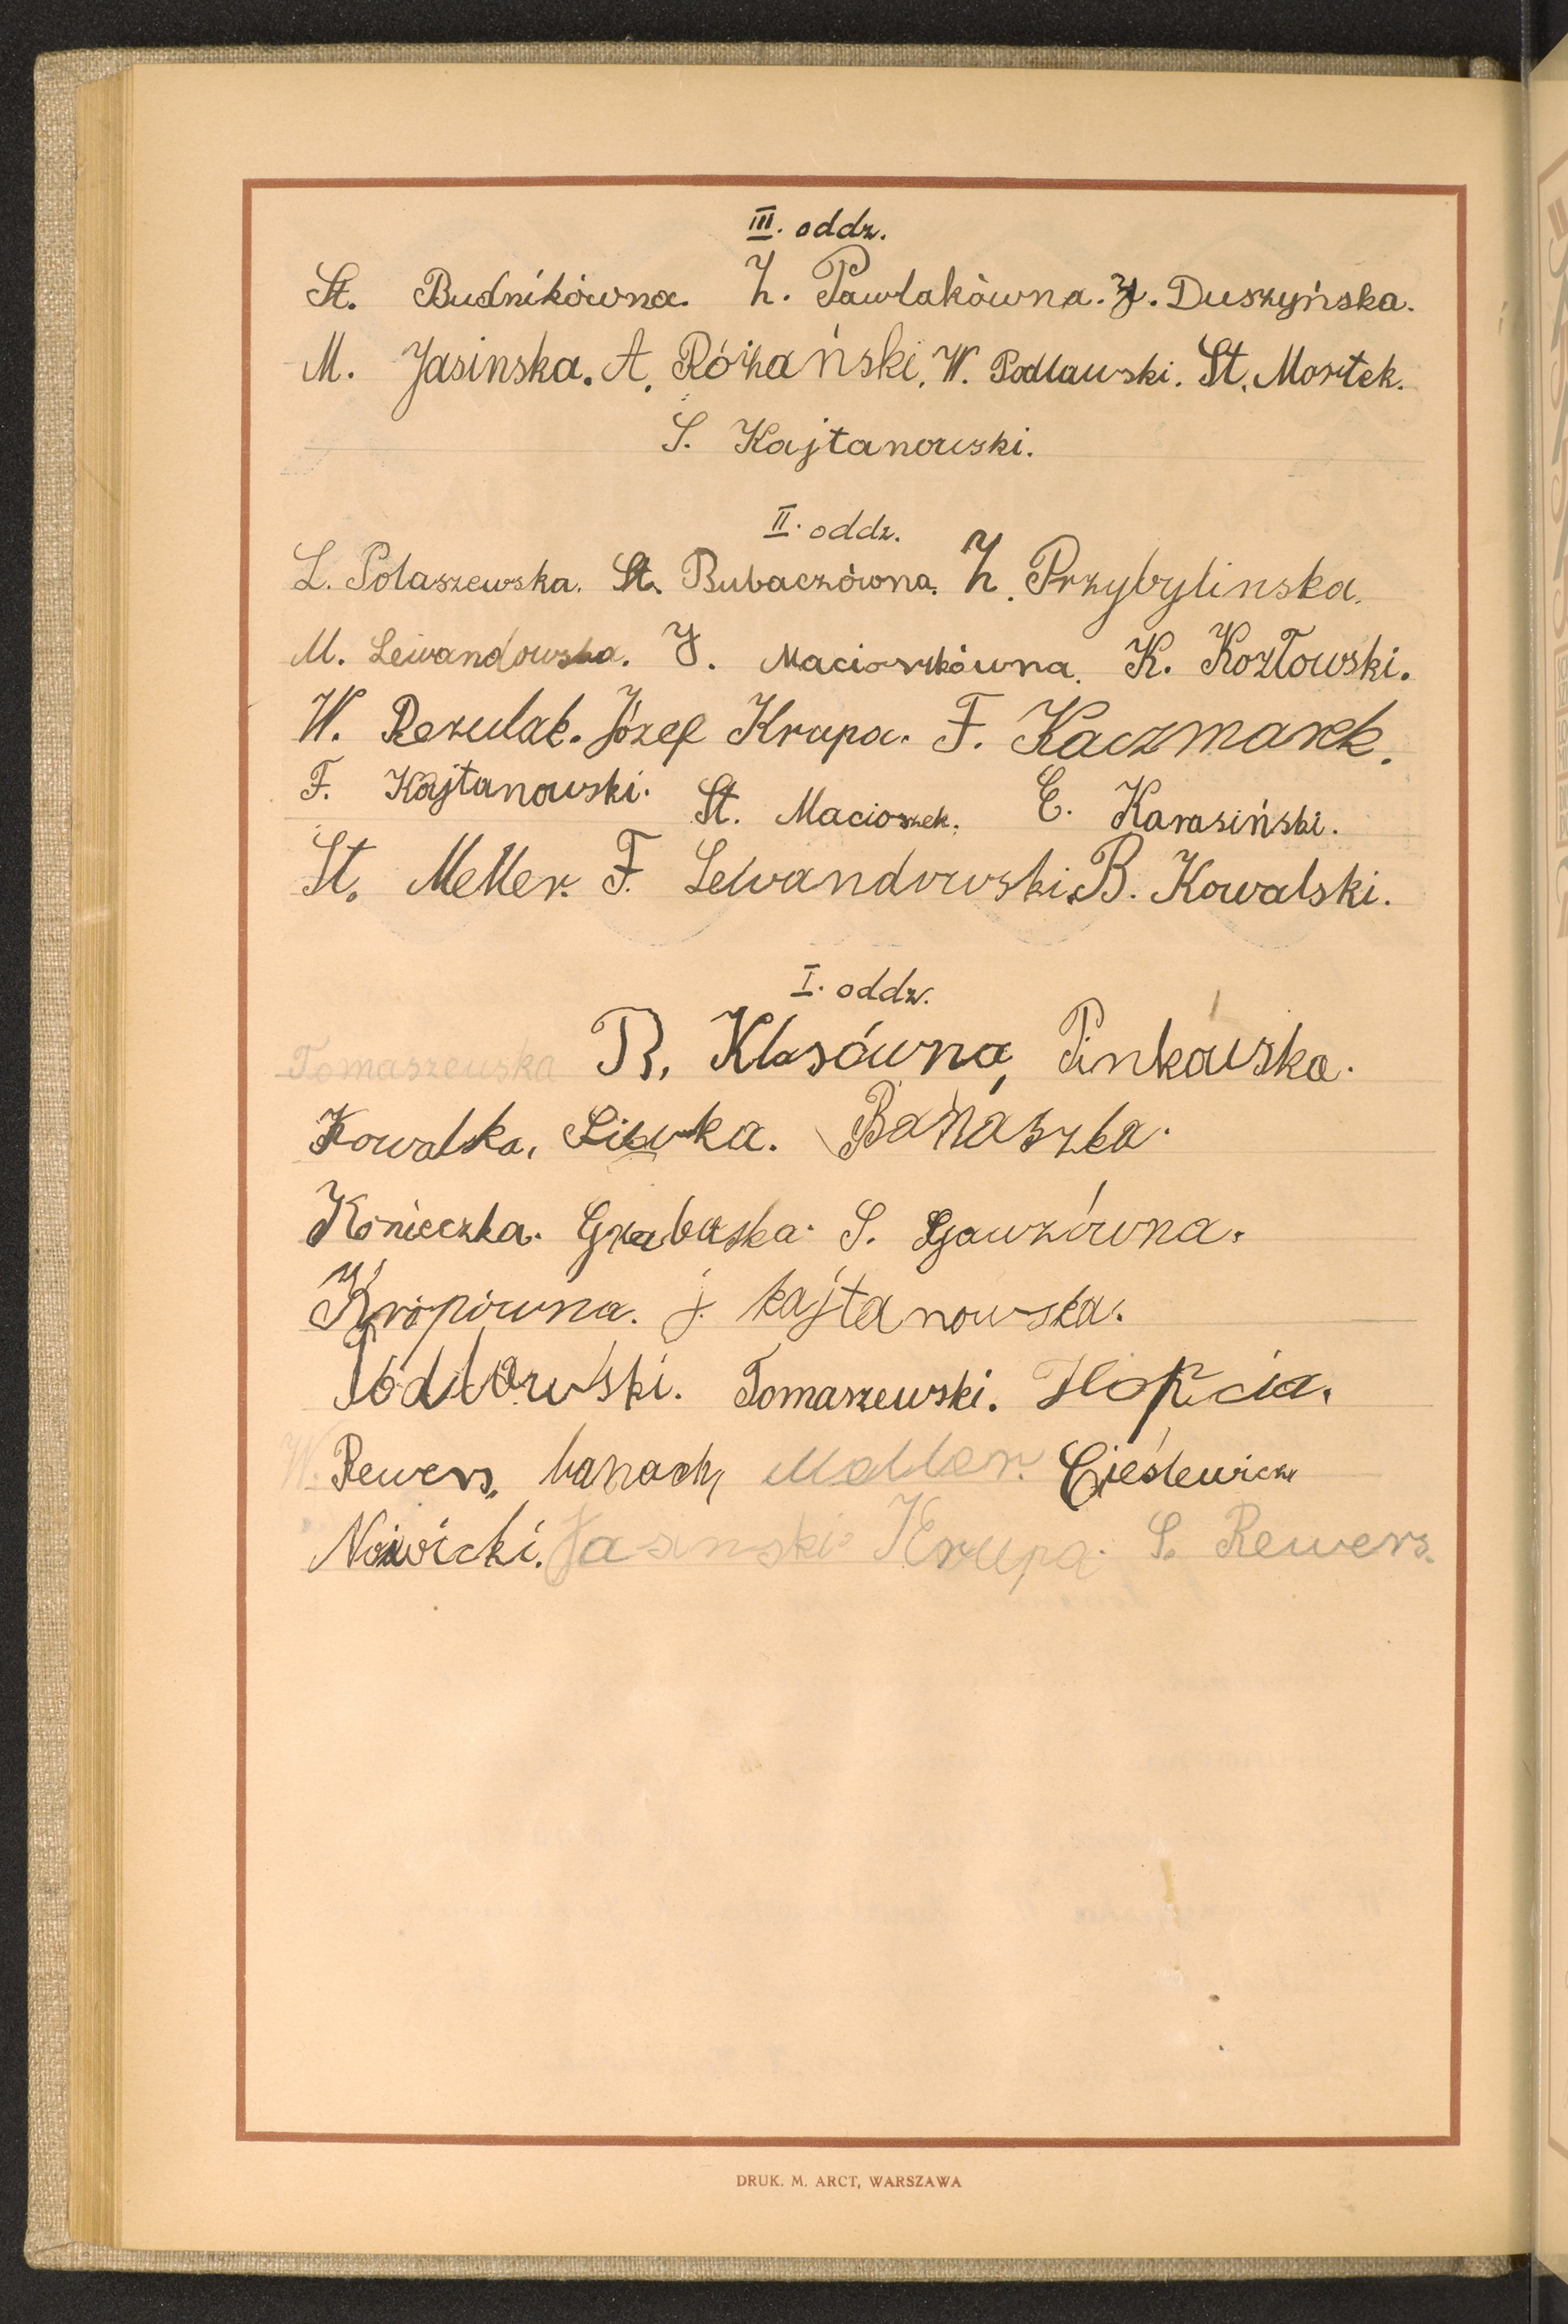 III. oddz.
St. Budnikówna. Z. Pawlakówna. J. Duszyńska.
M. Jasinska. A. Różański. W. Podlawski. St. Mortek.
S. Kajtanowski.
II. oddz.
L. Polaszewska. St. Bubaczówna. Z. Przybylinska.
M. Lewandowska. J. Macioszkówna. K. Kozłowski.
W. Rezulak. Józef Krupa. F. Kaczmarek.
F. Kajtanowski. St. Macioszek. E. Karasiński.
St. Meller. F. Lewandowski. B. Kowalski.
I. oddz.
Tomaszewska R. Klasówna, Pinkówska.
Kowalska, Banaszka.
Konieczka. Grabaska. S.
J. kajtanowska.
Tomaszewski.
W. Rewers, banach, Cieślewicz
Nowicki. Jasinski. Krupa. S. Rewers.
DRUK. M. ARCT, WARSZAWA